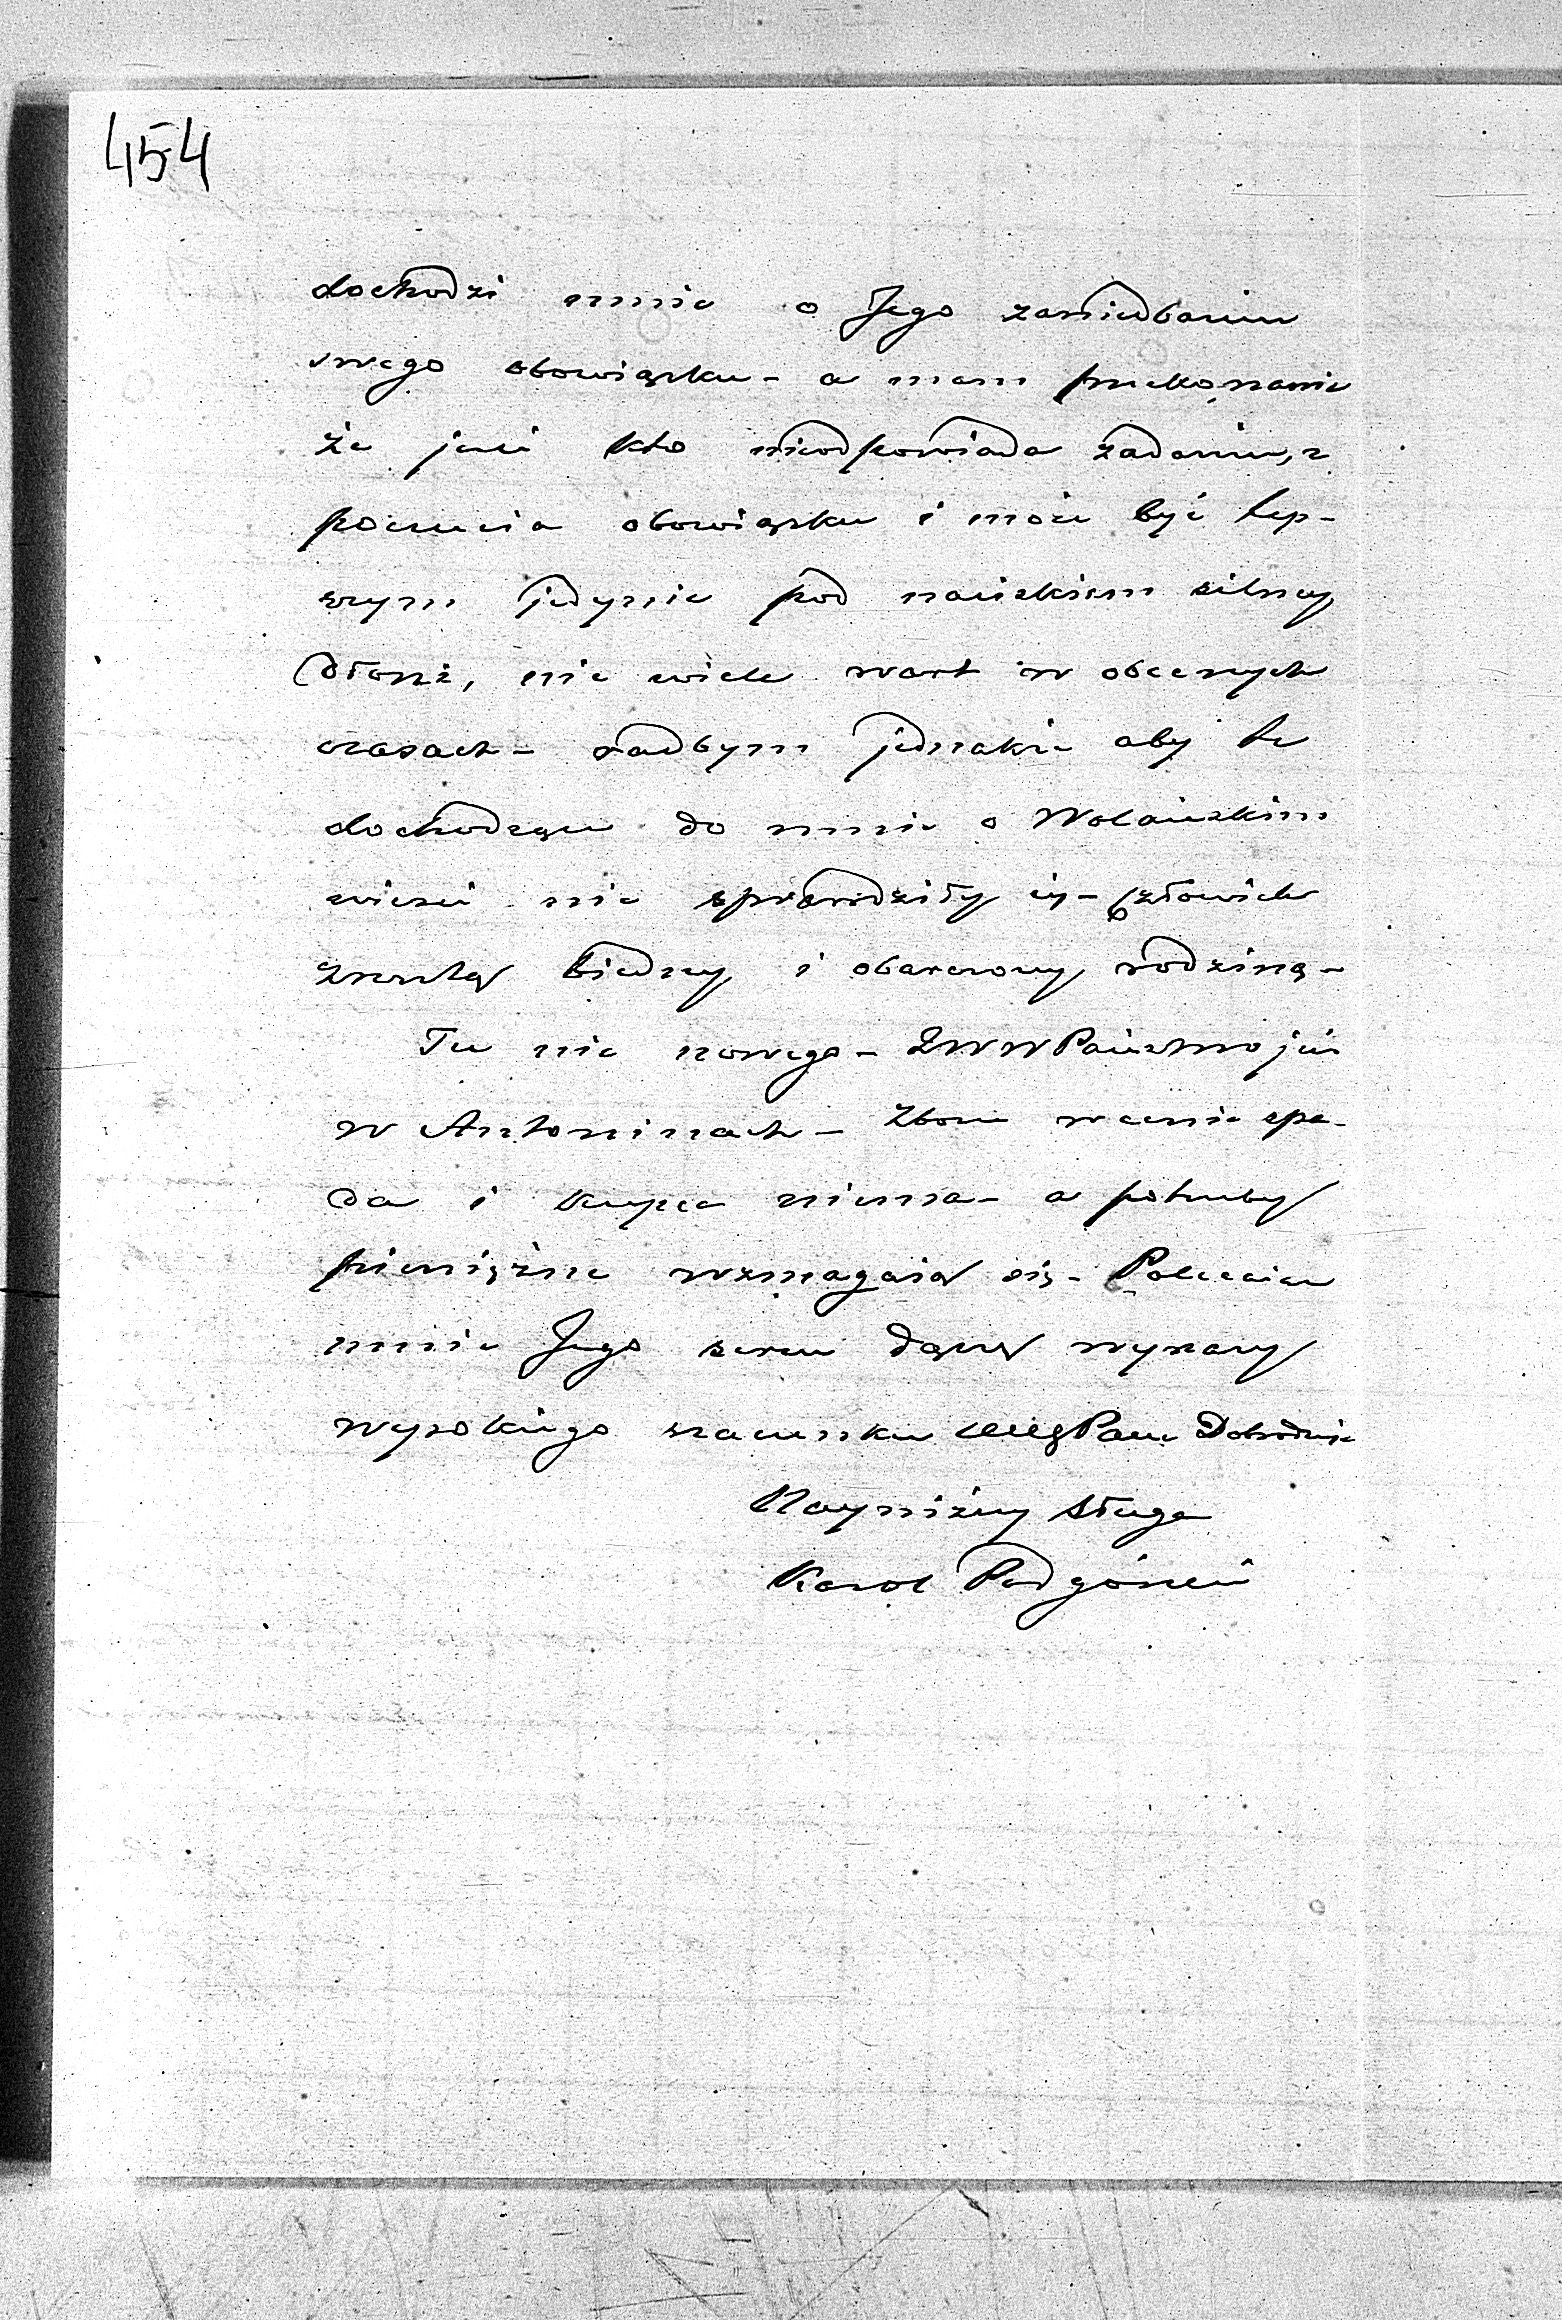 454
dochodzi mnie o Jego zaniedbaniu
swego obowiązku - a mam przekonanie
że jeśli kto nieodpowiada zadaniu, z
poczucia obowiązku i może być lep-
szym jedynie pod naciskiem silnej
dłoni, nie wiele wart w obecnych
czasach - radbym jednakże aby te
dochodzące do mnie o Wolańskim
wieści nie sprawdziły się - człowiek
zresztą biedny i obarczony rodziną -
Tu nic nowego - JWW Państwo już
w Antoninach - Zboże w cenie spa-
da i kupca niema - a potrzeby
pieniężne wzmagają się - Polecając
mnie Jego sercu łączę wyrazy
wysokiego szacunku Pana Dobrodzieja
Najniższy sługa
Karol Podgórski